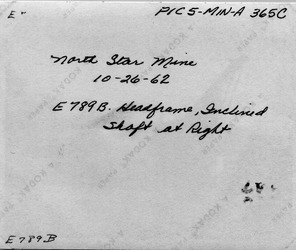 E-
PIC 5-MIN-A 365C
North Star Mine
10-26-62
E789B. Headframe, Inclined
Shaft at Right
E789B